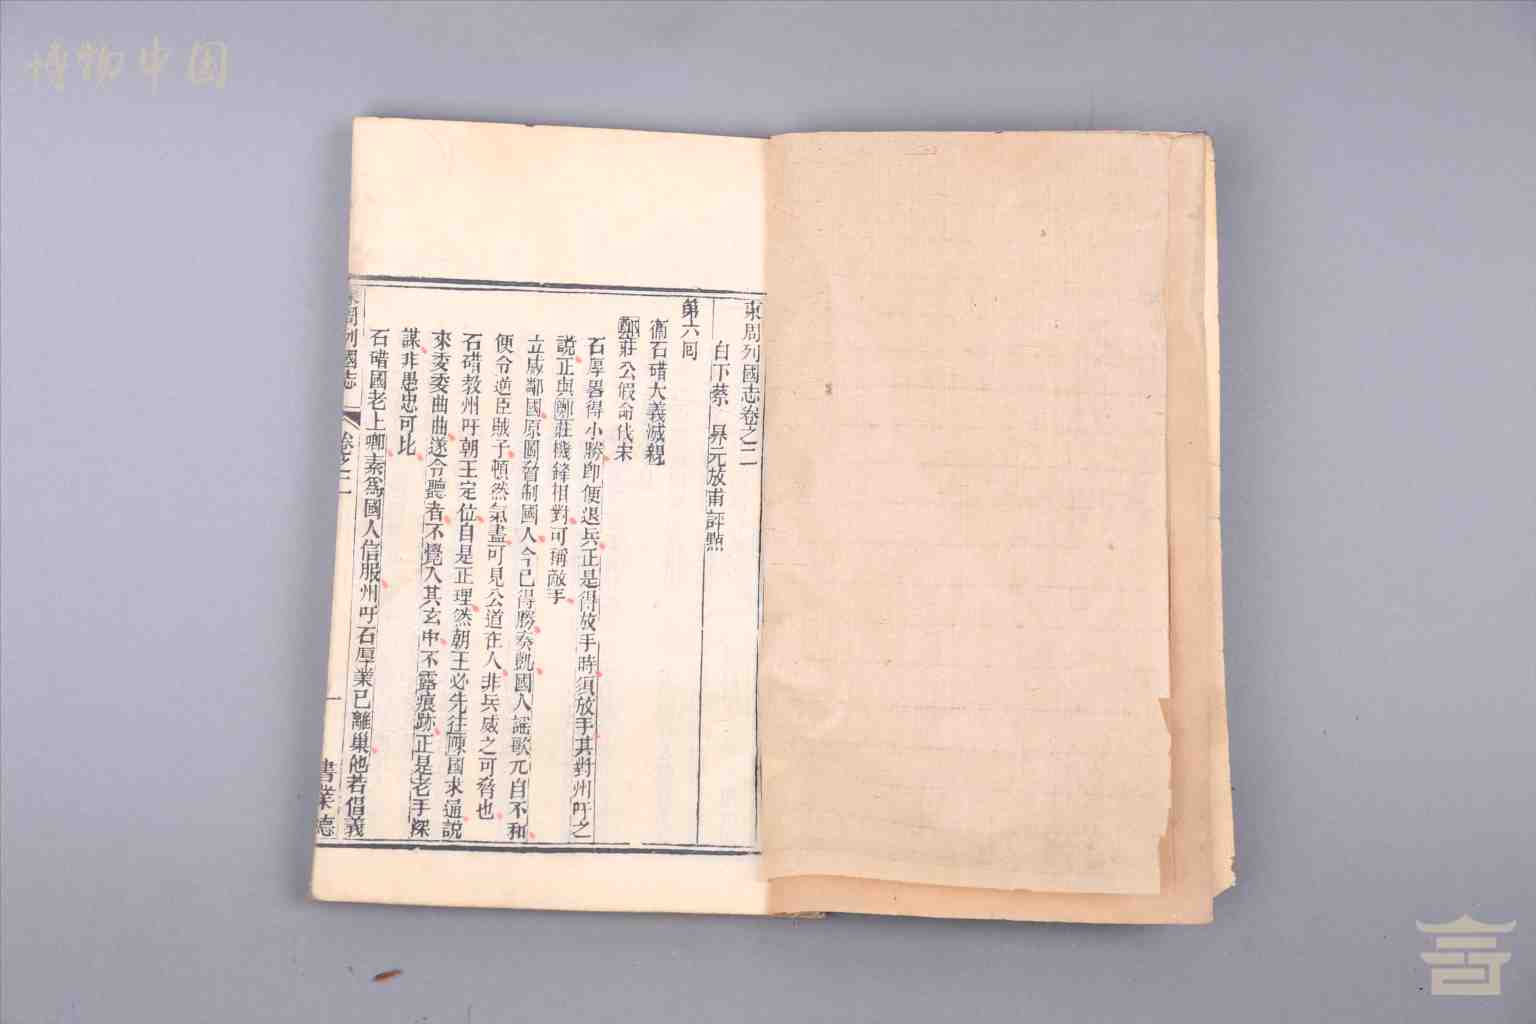 博物中国
東周列國志卷之二
白下蔡 昇元放甫評點
第六囘
衞石碏大義滅親
鄭莊公假命伐宋
石厚畧得小勝卽便退兵正是得放手時須放手其對州吁之
說正與鄭莊機鋒相對可稱敵手
立威鄰國原圖脅制國人今已得勝奏凱國人謠歌兀自不和
便令逆臣賊子頓然氣盡可見公道在人非兵威之可脅也
石碏教州吁朝王定位自是正理然朝王必先往陳國求通說
來委委曲曲遂令聽者不覺入其玄中不露痕跡正是老手深
謀非愚忠可比
石碏國老上卿素爲國人信服州吁石厚業已離巢他若倡義
東周列國志 卷之二 一 書業德